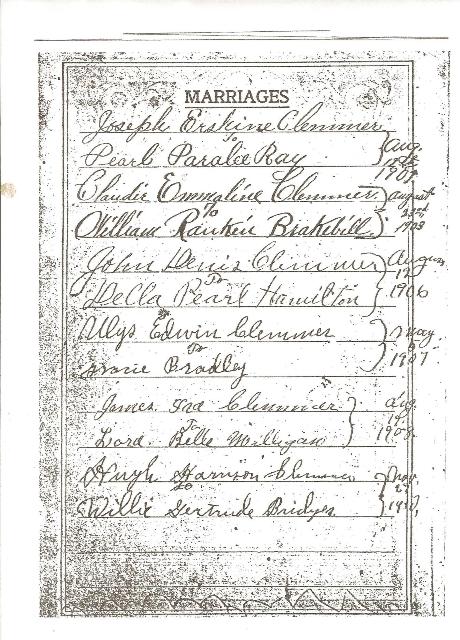 MARRIAGES
Joseph Erskine Clemmer
to
Pearl Paralee Ray
Aug.
Claudie Emmaline Clemmer
to
William Rankin Brakebill
August
23rd
1903
John Denis Clemmer
to
Della Pearl Hamilton
August
12
1906
Ulys Edwin Clemmer
to
Bradley
May
1907
James Ira Clemmer
to
Belle Milligan
Aug.
1908
Hugh Harrison Clemmer
to
Willie Gertrude Bridges
Nov.